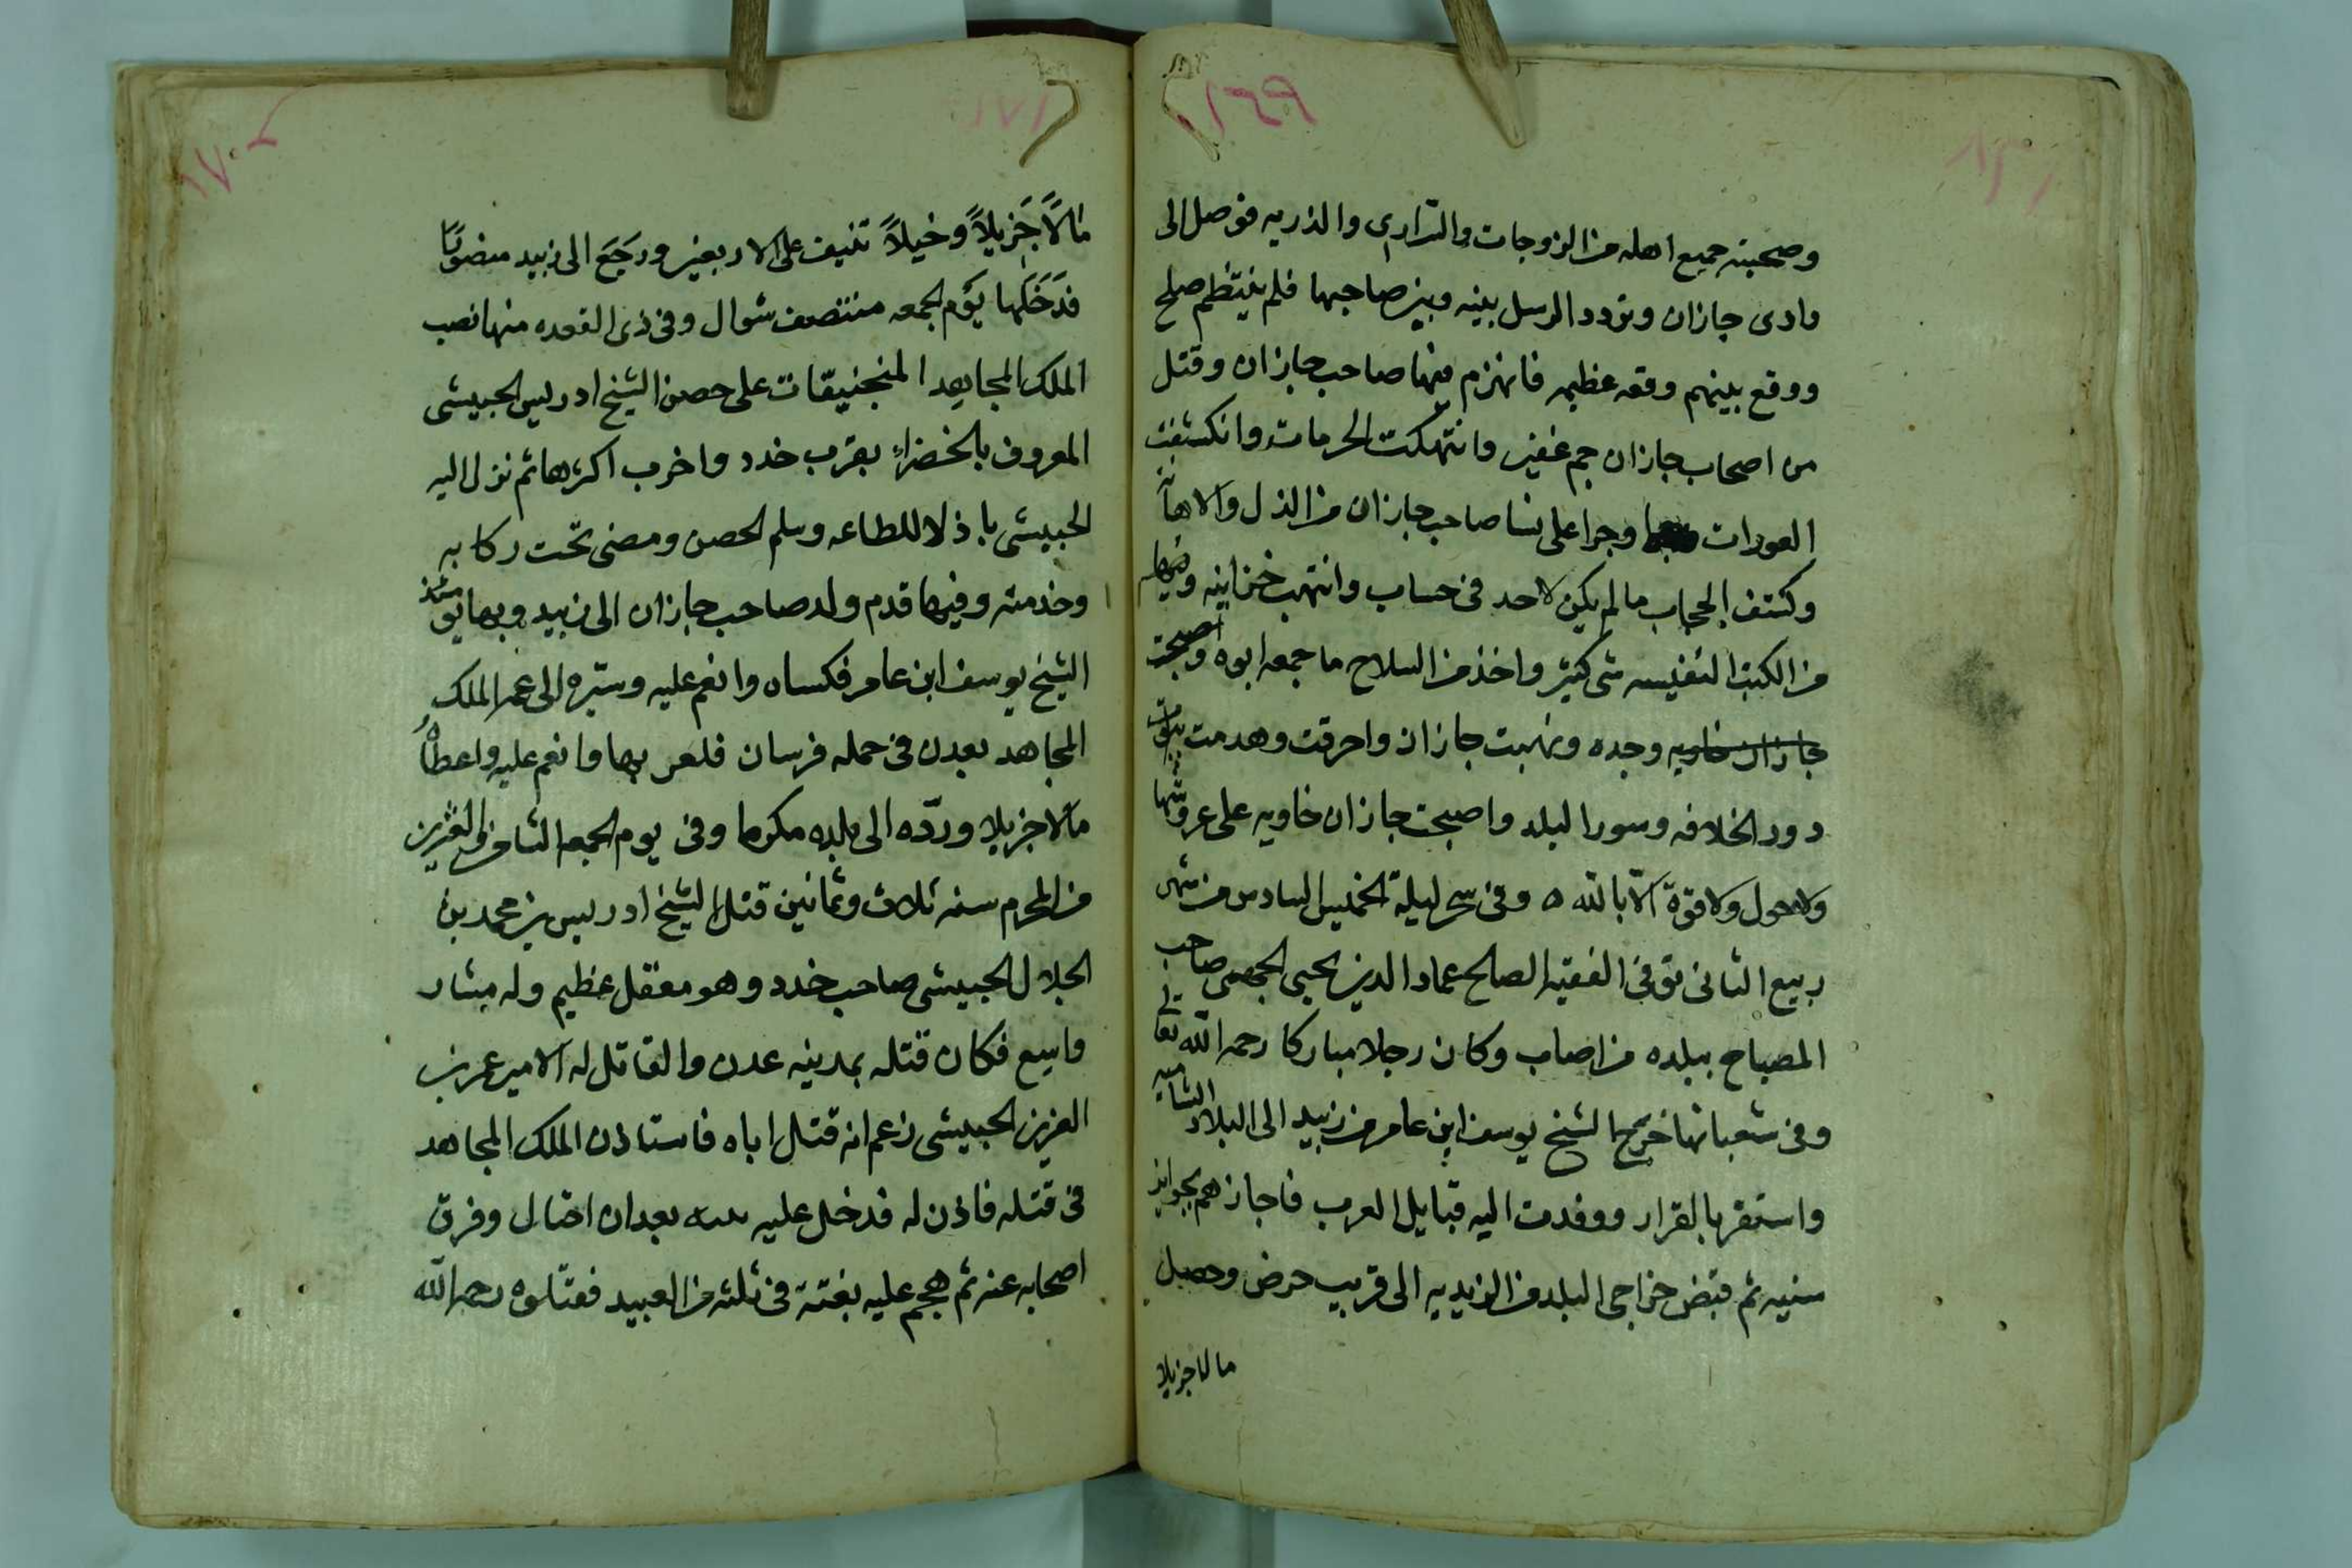 ١٦٩
وصحبته جميع اهله من الزوجات والسراري والذريه فوصل الى
وادى جازان وتردد الرسل بينه وبين صاحبها فلم ينتظم صلح
ووقع بينهم وقعه عظيمه فانهزم فيها صاحب جازان وقتل
من اصحاب جازان جم غفير وانتهكت الحرمات وانكشفت
العورات وجرا على نسا صاحب جازان من الذل والاهانه
وكشف الحجاب ما لم يكن لاحد فى حساب وانتهب خزاينه وفيها
من الكتب النفيسه شى كثير واخذ من السلاح ما جمعه ابوه واصبحت
جازان خاويه وجده ونهبت جازان واحرقت وهدمت بيوت
دور الخلافه وسور البلد واصبحت جازان خاويه على عروشها
ولا حول ولا قوة الا بالله ه وفى سحر ليلة الخميس السادس من شهر
ربيع الثانى توفى الفقيه الصالح عماد الدين يحيى صاحب
المصباح ببلده من اصاب وكان رجلا مباركا رحمه الله تعالى
وفى شعبانها خرج الشيخ يوسف ابن عامر من زبيد الى البلاد الشاميه
واستقر بالقرار ووفدت اليه قبايل العرب فاجازهم بجوايز
سنيه ثم قبض خراجى البلد من الزيديه الى قريب حرض وحصل
مالا جزيلا
١٧٠
١٧١
مالاً جَزيلاً وخيلاً تنيف على الاربعين ورَجَعَ الى زبيد منصورًا
فدَخَلها يَوم الجمعه منتصف شوال وفى ذى القعده منها نصب
الملك المجاهد المنجنيقات على حصن الشيخ ادريس الحبيشى
المعروف بالخضراء بقرب خدد واخرب اكثرها ثم نزل اليه
الحبيشى باذلا للطاعه وسلم الحصن ومضى تحت ركابه
وخدمته وفيها قدم ولد صاحب جازان الى زبيد وبها يومئذ
الشيخ يوسف ابن عامر فكساه وانعم عليه وسيره الى عمه الملك
المجاهد بعدن فى حمله فرسان فلعب بها وانعم عليه واعطاهُ
مالا جزيلا وردّه الى بلده مكرما وفى يوم الجمعه الثامن والعشرين
من المحرم سنه ثلاث وثمانين قتل الشيخ ادريس بن محمد بن
الجلال الحبيشى صاحب خدد وهو معقل عظيم وله مشار
واسع فكان قتله بمدينه عدن والقاتل له الامير عزيز
العزيز الحبيشى زعم انه قتل اباه فاستاذن الملك المجاهد
فى قتله فاذن له فدخل عليه بيته بعد ان احتال وفرق
اصحابه عنه ثم هجم عليه بغتة فى ثلثه من العبيد فقتلوه رحمه الله